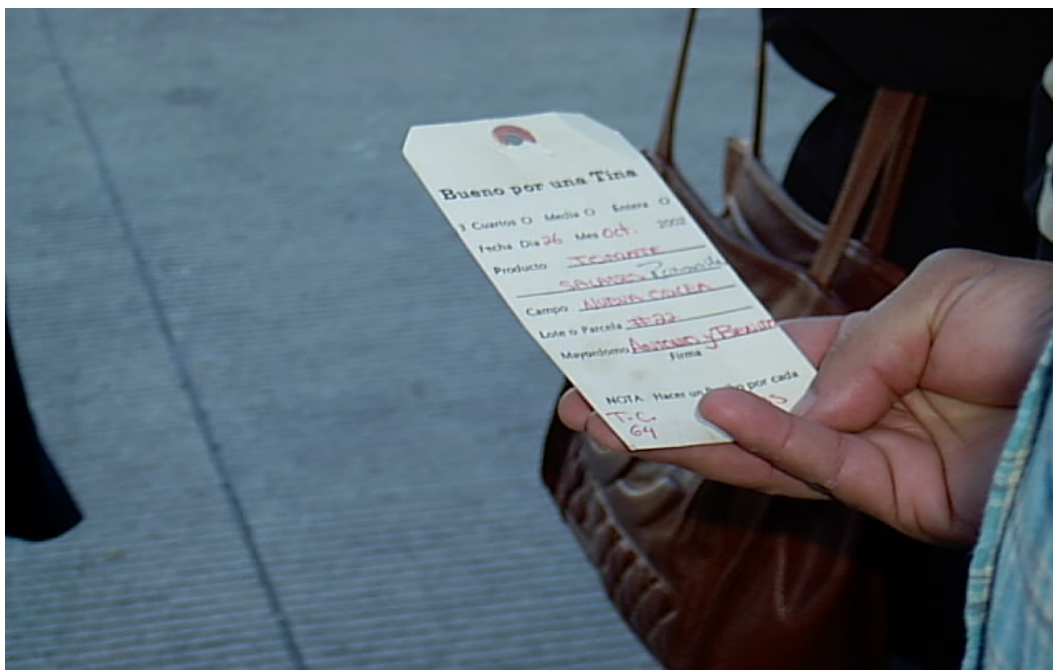 Bueno por una Tina
3 Cuartos O Media O Entera O
Fecha Dia 26 Mes Oct. 2002
Producto TOMATE
Campo NUEVA
Lote o Parcela #22
Mayordomo ANTONIO y
Firma
NOTA: Hacer un por cada
T.C.
64